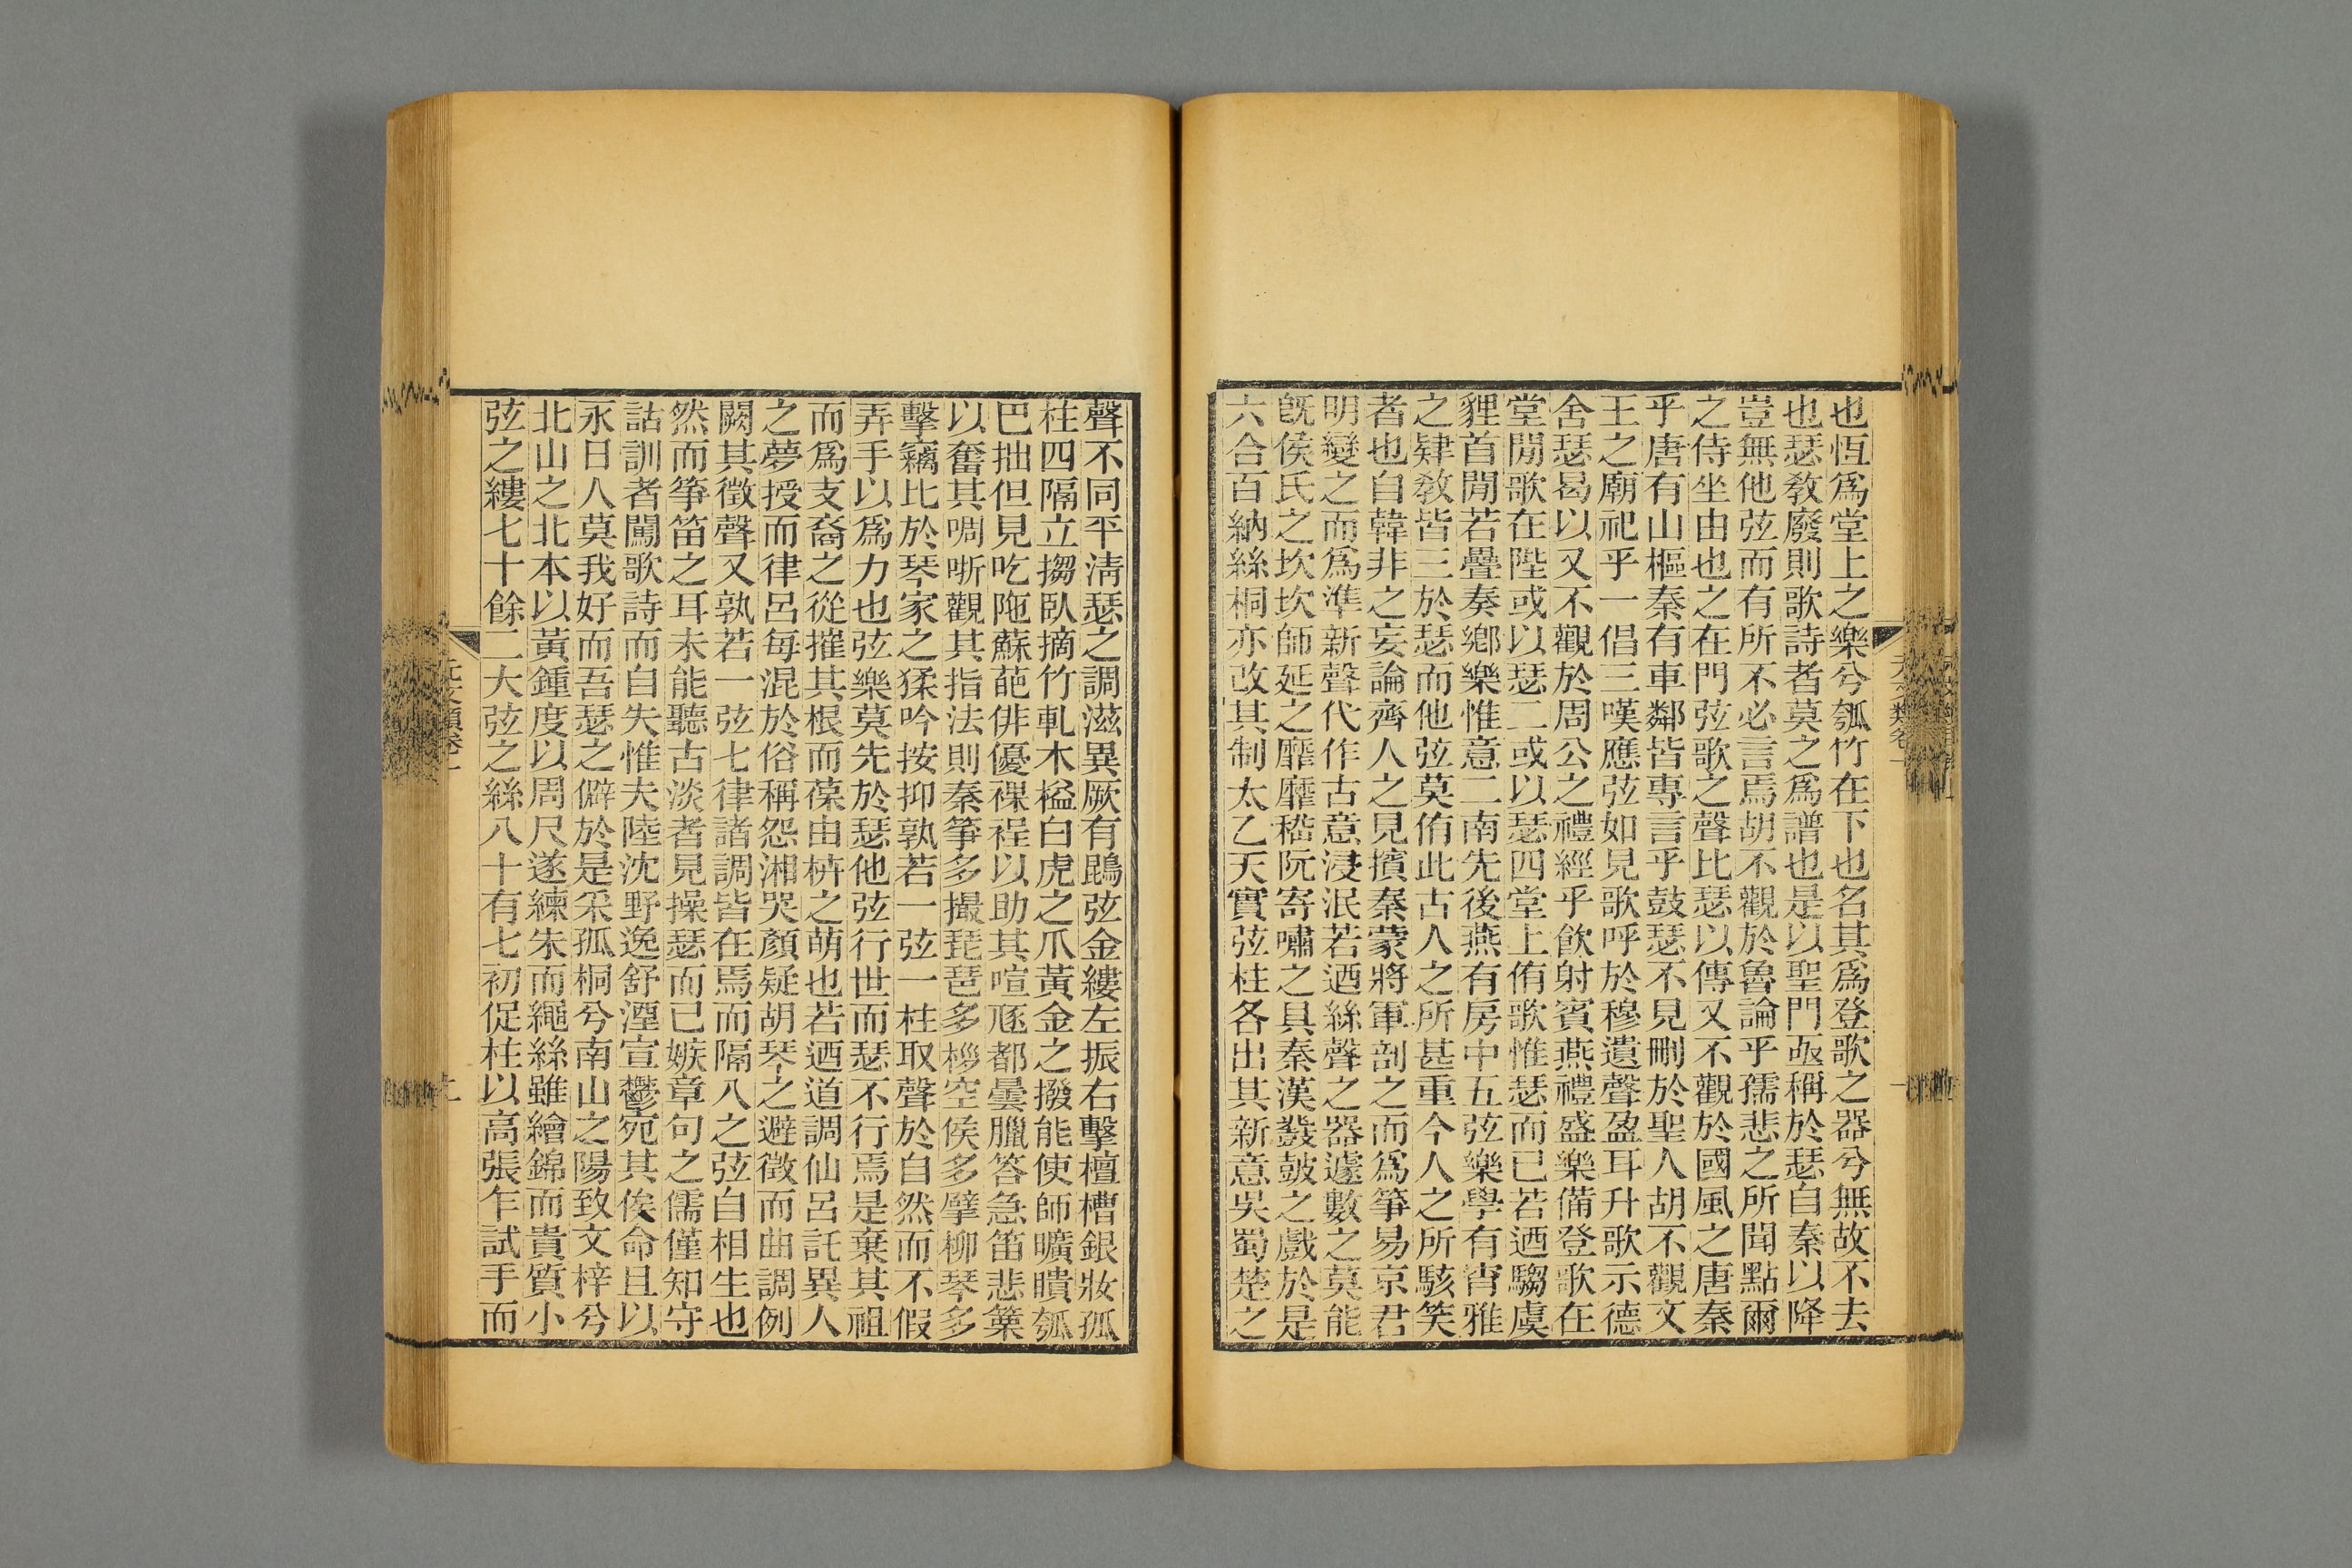 也恆爲堂上之樂兮瓠竹在下也名其爲登歌之器兮無故不去
也瑟敎廢則歌詩者莫之爲譜也是以聖門亟稱於瑟自秦以降
豈無他弦而有所不必言焉胡不觀於魯論乎孺悲之所聞點爾
之侍坐由也之在門弦歌之聲比瑟以傳又不觀於國風之唐秦
乎唐有山樞秦有車鄰皆專言乎鼓瑟不見刪於聖人胡不觀文
王之廟祀乎一倡三嘆應弦如見歌呼於穆遺聲盈耳升歌示德
舍瑟曷以又不觀於周公之禮經乎飮射賓燕禮盛樂備登歌在
堂閒歌在陛或以瑟二或以瑟四堂上侑歌惟瑟而已若迺騶虞
貍首閒若疊奏鄕樂惟意二南先後燕有房中五弦樂學有宵雅
之肄敎皆三於瑟而他弦莫侑此古人之所甚重今人之所駭笑
者也自韓非之妄論齊人之見擯秦蒙將軍剖之而爲箏易京君
明變之而爲準新聲代作古意浸泯若迺絲聲之器遽數之莫能
旣侯氏之坎坎師延之靡靡嵇阮寄嘯之具秦漢鼗鼓之戲於是
六合百納絲桐亦改其制太乙天寶弦柱各出其新意吳蜀楚之
聲不同平淸瑟之調滋異厥有鵾弦金縷左振右擊檀槽銀妝孤
柱四隔立搊臥摘竹軋木楹白虎之爪黃金之撥能使師曠瞶瓠
巴拙但見吃陁蘇葩俳優裸裎以助其喧豗都曇臘答急笛悲篥
以奮其啁哳觀其指法則秦箏多撮琵琶多㨰空侯多擘柳琴多
擊竊比於琴家之猱吟按抑孰若一弦一柱取聲於自然而不假
弄手以爲力也弦樂莫先於瑟他弦行世而瑟不行焉是棄其祖
而爲支裔之從摧其根而葆由枿之萌也若迺道調仙呂託異人
之夢授而律呂每混於俗稱怨湘哭顏疑胡琴之避徵而曲調例
闕其徵聲又孰若一弦七律諸調皆在焉而隔八之弦自相生也
然而箏笛之耳未能聽古淡者見操瑟而已嫉章句之儒僅知守
詁訓者闖歌詩而自失惟夫陸沈野逸舒湮宣鬱宛其俟命且以
永日人莫我好而吾瑟之僻於是采孤桐兮南山之陽致文梓兮
北山之北本以黃鍾度以周尺遂練朱而繩絲雖繪錦而貴質小
弦之縷七十餘二大弦之絲八十有七初促柱以高張乍試手而